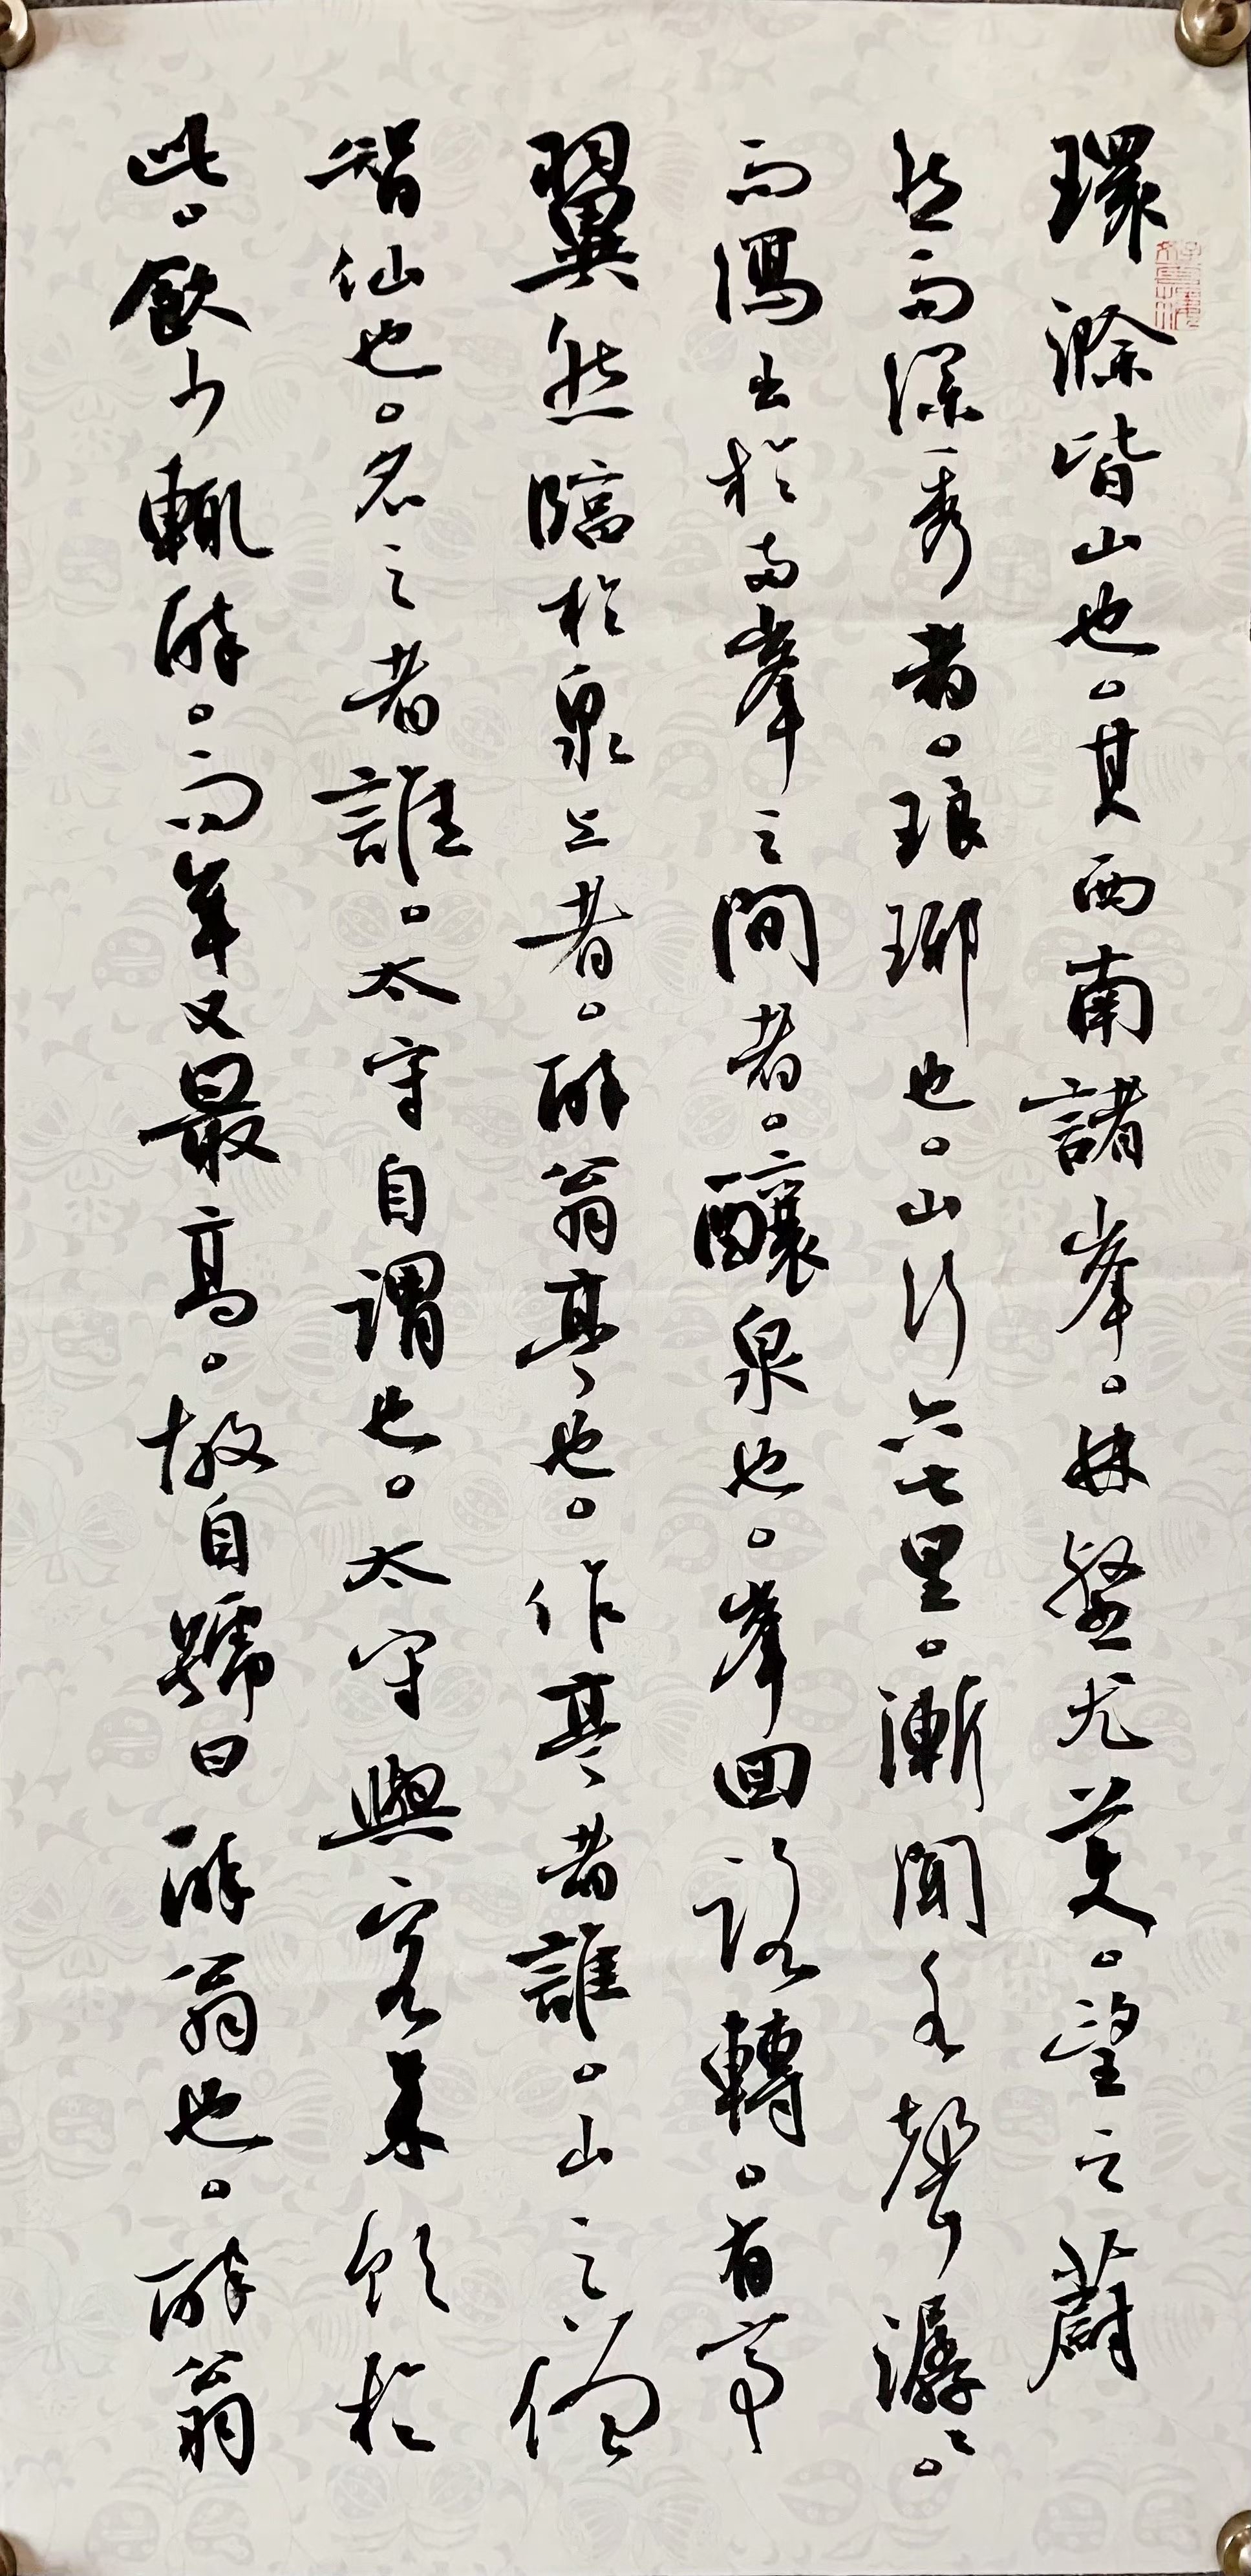 環滁皆山也。其西南諸峯。林壑尤美。望之蔚
然而深秀者。琅琊也。山行六七里。漸聞水聲潺〻。
而瀉出於兩峯之間者。釀泉也。峯回路轉。有亭
翼然臨於泉上者。醉翁亭也。作亭者誰。山之僧
智仙也。名之者誰。太守自謂也。太守與客來飲於
此。飲少輒醉。而年又最高。故自號曰醉翁也。醉翁